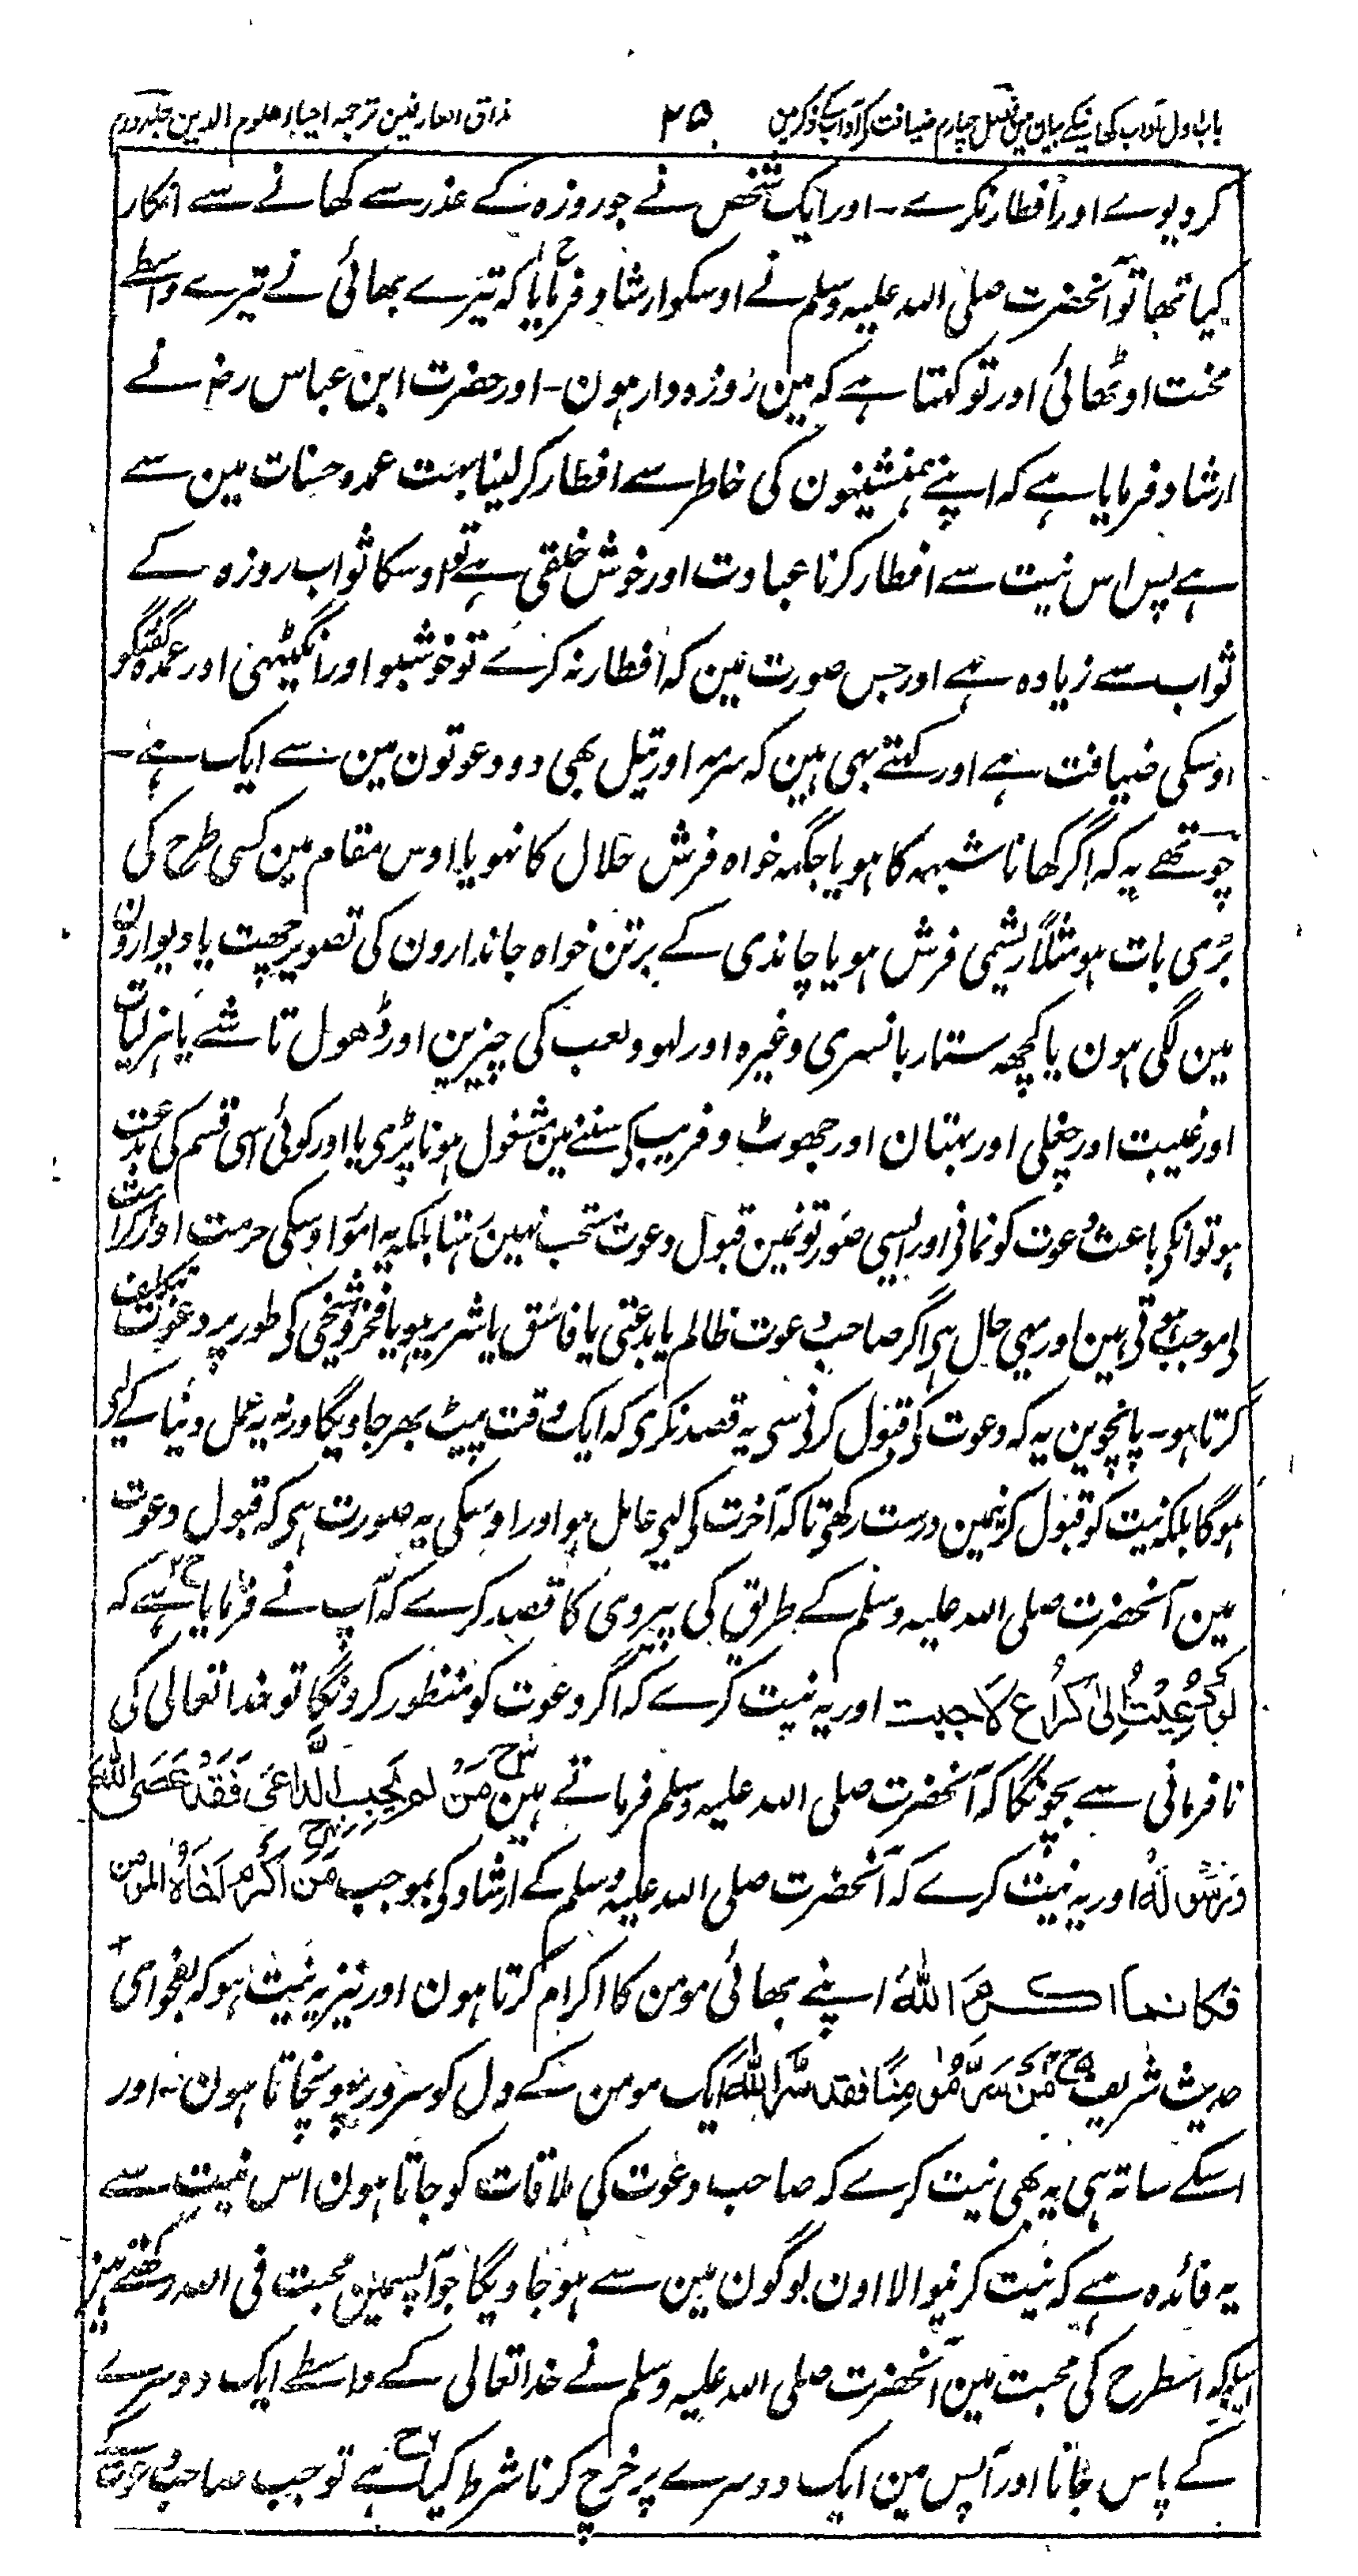 باب اول آداب کھانیکے بیان مین فصل چہارم ضیافت کے آداب کے ذکر مین ۲۵ مذاق العارفین ترجمہ احیاء علوم الدین جلد دوم
کر دیوے اور افطار نکرے ۔ اور ایک شخص نے جو روزہ کے عذر سے کھانے سے انکار
کیا تھا تو آنحضرت صلی اللہ علیہ وسلم نے اوسکو ارشاد فرمایا کہ تیرے بھائی نے تیرے واسطے
محنت اوٹھائی اور تو کہتا ہے کہ مین روزہ دار ہون ۔ اور حضرت ابن عباس رضہ نے
ارشاد فرمایا ہے کہ اپنے ہمنشینون کی خاطر سے افطار کر لینا بہت عمدہ حسنات مین سے
ہے پس اس نیت سے افطار کرنا عبادت اور خوش خلقی ہے تو اوسکا ثواب روزہ کے
ثواب سے زیادہ ہے اور جس صورت مین کہ افطار نہ کرے تو خوشبو اور انگیٹھی اور عمدہ گفتگو
اوسکی ضیافت ہے اور کہتے بھی ہین کہ سرمہ اور تیل بھی دو دعوتون مین سے ایک ہے ۔
چوتھے یہ کہ اگر کھانا شبہہ کا ہو یا جگہہ خواہ فرش حلال کا نہو یا اوس مقام مین کسی طرح کی
بُری بات ہو مثلاً ریشمی فرش ہو یا چاندی کے برتن خواہ جاندارون کی تصویر چھت یا دیوارون
مین لگی ہون یا کچھہ ستار بانسری وغیرہ اور لہو و لعب کی چیزین اور ڈھول تاشے یا ہزلیات
اور غیبت اور چغلی اور بہتان اور جھوٹ و فریب کے سننے مین مشغول ہونا پڑے یا اور کوئی اسی قسم کی بدعت
ہو تو انکے باعث دعوت کو نمانے اور ایسی صورتونمین قبول دعوت مستحب نہین رہتا بلکہ یہ امور اوسکی حرمت اور کراہت
کے موجب ہوتے ہین اور یہی حال ہے اگر صاحب دعوت ظالم یا بدعتی یا فاسق یا شریر ہو یا فخر و شیخی کے طور پر دعوت تکلف
کرتا ہو ۔ پانچوین یہ کہ دعوت کے قبول کرنے سے یہ قصد نکرے کہ ایک وقت پیٹ بھر جاویگا ورنہ یہ عمل دنیا کے لیے
ہوگا بلکہ نیت کو قبول کرنیمین درست رکھے تاکہ آخرت کے لیے عامل ہو اور اوسکی یہ صورت ہے کہ قبول دعوت
مین آنحضرت صلی اللہ علیہ وسلم کے طریق کی پیروی کا قصد کرے کہ آپ نے فرمایا ہے کہ
لَوْ دُعِيْتُ اِلیٰ كُرَاعٍ لَاَجبت اور یہ نیت کرے کہ اگر دعوت کو منظور کرونگا تو خدا تعالی کی
نافرمانی سے بچونگا کہ آنحضرت صلی اللہ علیہ وسلم فرماتے ہین مَنْ لم یُجِبِ الدَّاعِیَ فَقَدْ عَصَی اللّٰهَ
وَرَسُوْلَهُ اور یہ نیت کرے کہ آنحضرت صلی اللہ علیہ وسلم کے ارشاد کے بموجب مَنْ اَکْرَمَ اَخَاهُ المومن
فکانما اکرم اللّٰهَ اپنے بھائی مومن کا اکرام کرتا ہون اور نیز یہ نیت ہو کہ بفحوای
حدیث شریف مَنْ سَرَّ مُؤْمِنًا فقد سَرَّ اللّٰهَ ایک مومن کے دل کو سرور پہونچاتا ہون ۔ اور
اسکے ساتہ ہی یہ بھی نیت کرے کہ صاحب دعوت کی ملاقات کو جاتا ہون اس نیت سے
یہ فائدہ ہے کہ نیت کرنیوالا اون لوگون مین سے ہو جاویگا جو آپسمین محبت فی اللہ رکھتے ہین
اسلیے کہ اسطرح کی محبت مین آنحضرت صلی اللہ علیہ وسلم نے خدا تعالی کے واسطے ایک دوسرے
کے پاس جانا اور آپس مین ایک دوسرے پر خرچ کرنا شرط کیا ہے تو جب صاحب دعوت